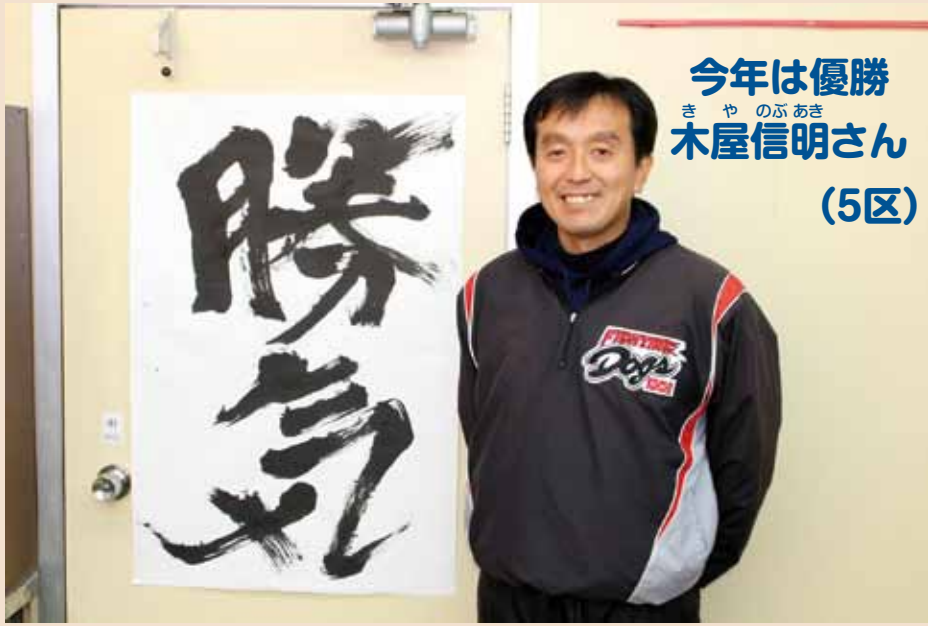 今年は優勝
き や のぶ あき
木屋信明さん
(5区)
勝気
FIGHTING
Dogs